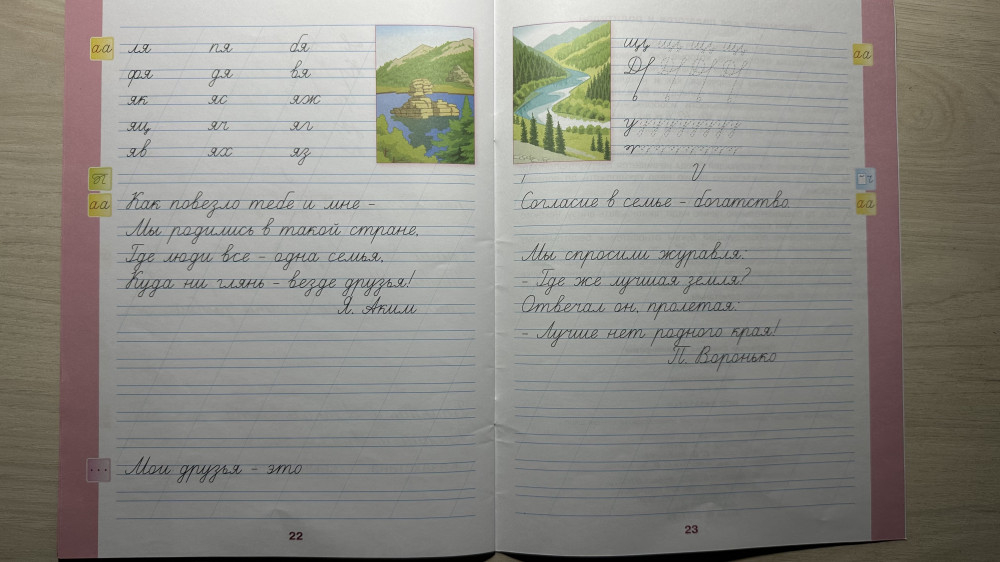 аа
ля пя бя
фя дя вя
як яс яж
ящ яч яг
яв ях яз
аа
Как повезло тебе и мне –
Мы родились в такой стране,
Где люди все – одна семья,
Куда ни глянь – везде друзья!
Я. Аким
...
Мои друзья – это
22
щц щц щц щц
у у у у у у у у у
аа
Согласие в семье – богатство
аа
Мы спросили журавля:
– Где же лучшая земля?
Отвечал он, пролетая:
– Лучше нет родного края!
П. Воронько
23